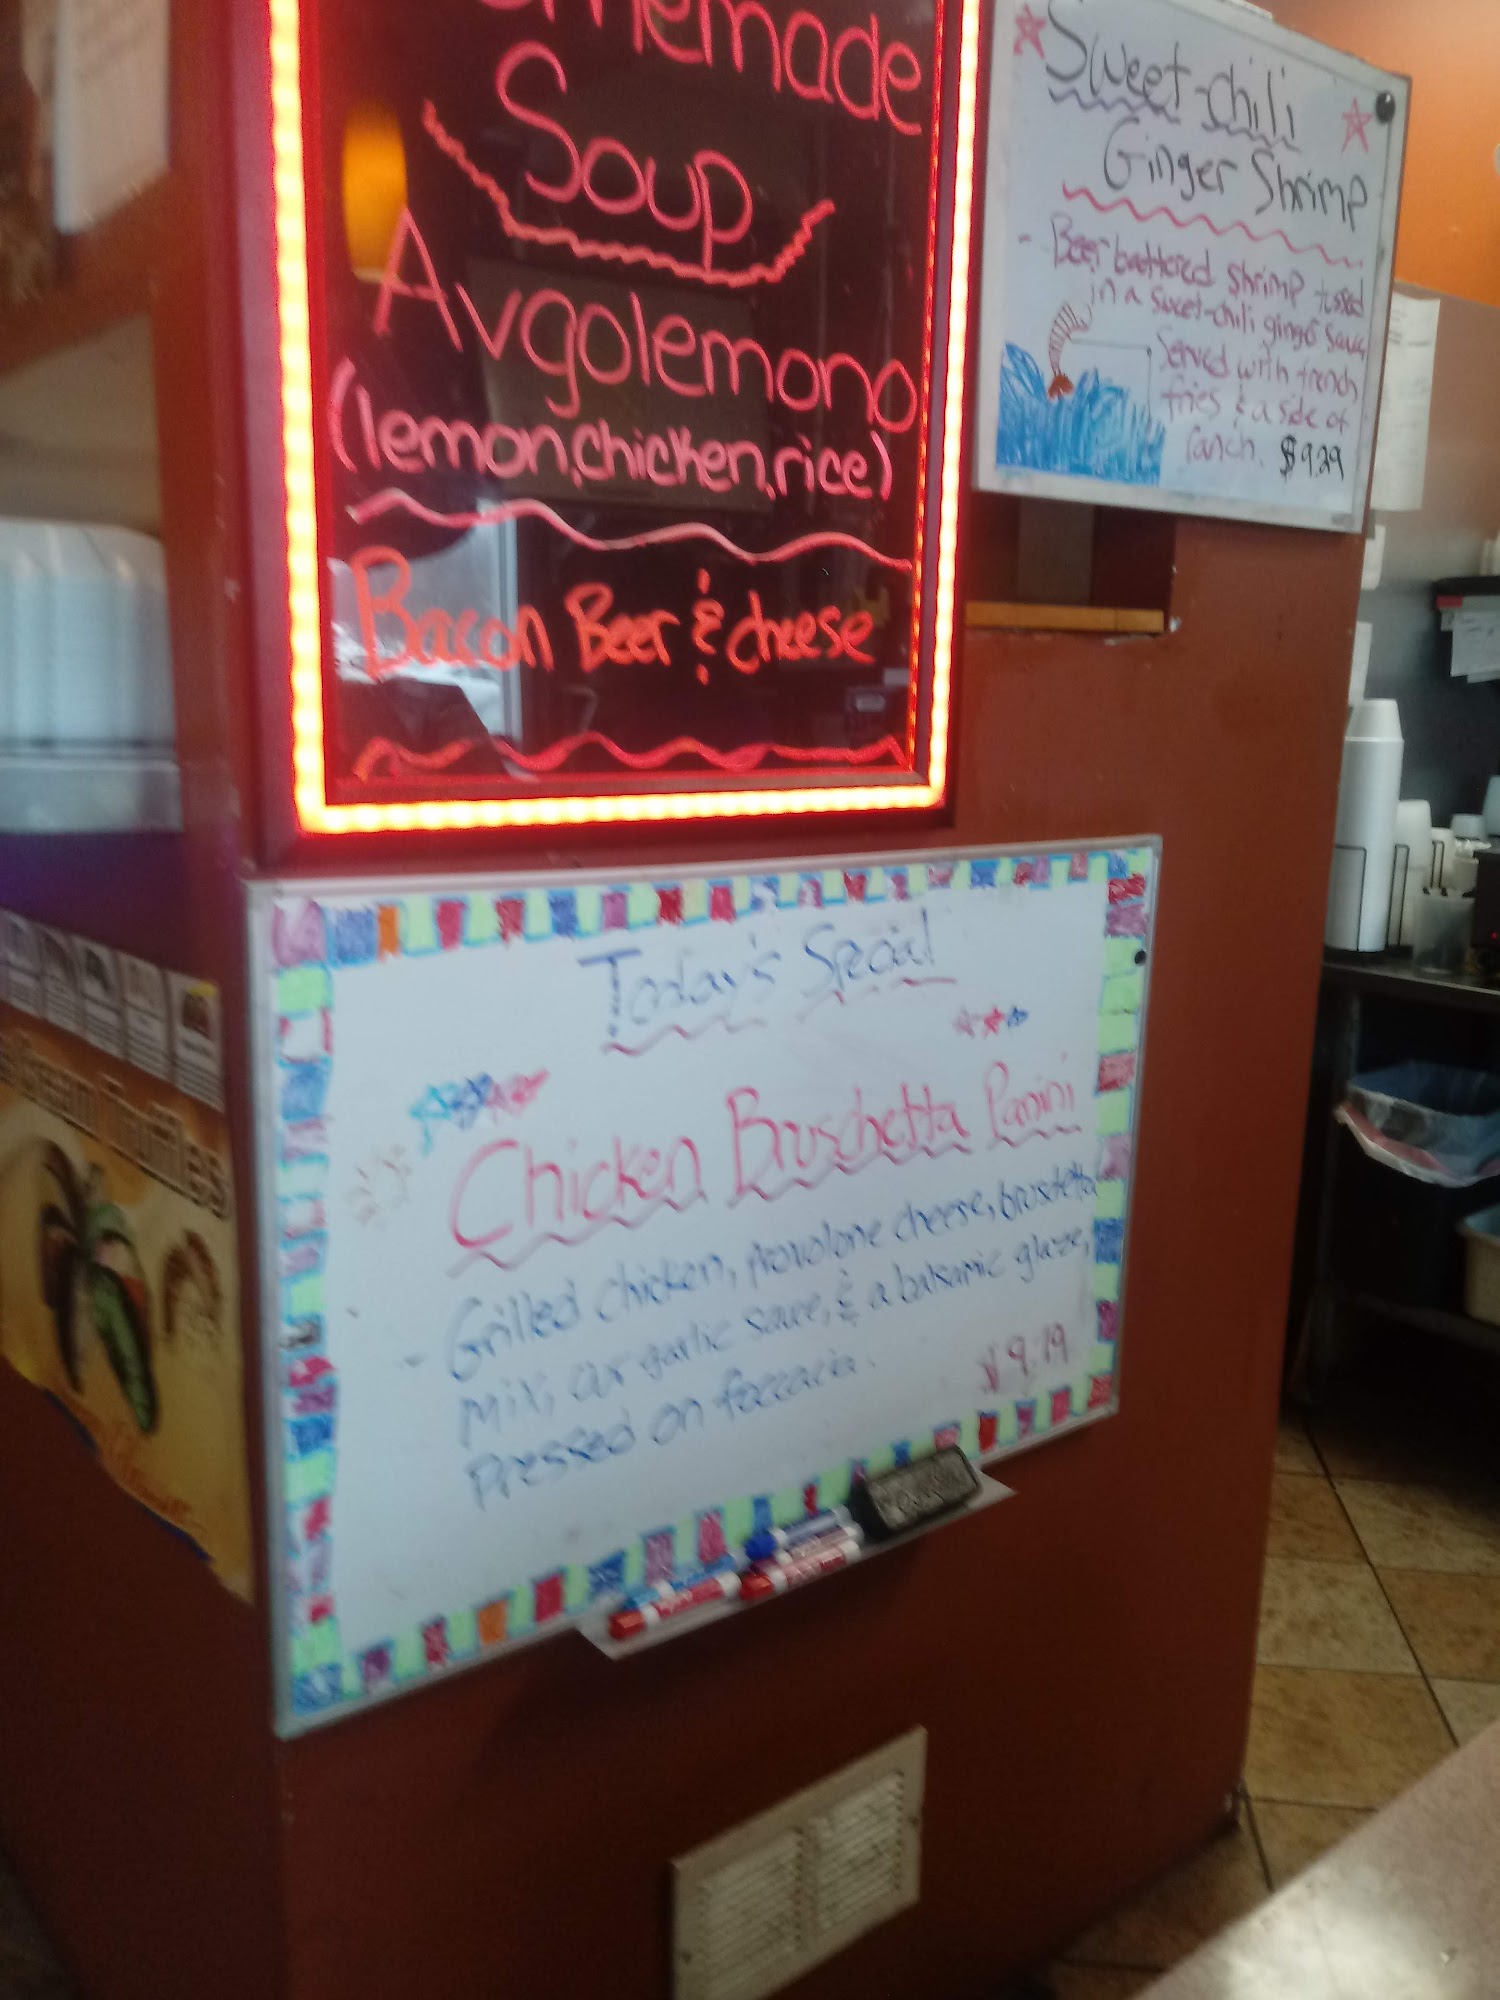 Homemade
Soup
Avgolemono
(lemon, chicken, rice)
Bacon Beer & cheese
Sweet-chili
Ginger Shrimp
- Beer battered shrimp tossed
in a sweet-chili ginger sauce
Served with french
fries & a side of
ranch. $9.29
Today's Special
Chicken Bruschetta Panini
- Grilled chicken, provolone cheese, bruschetta
mix, our garlic sauce, & a balsamic glaze,
Pressed on foccacia.
$9.19